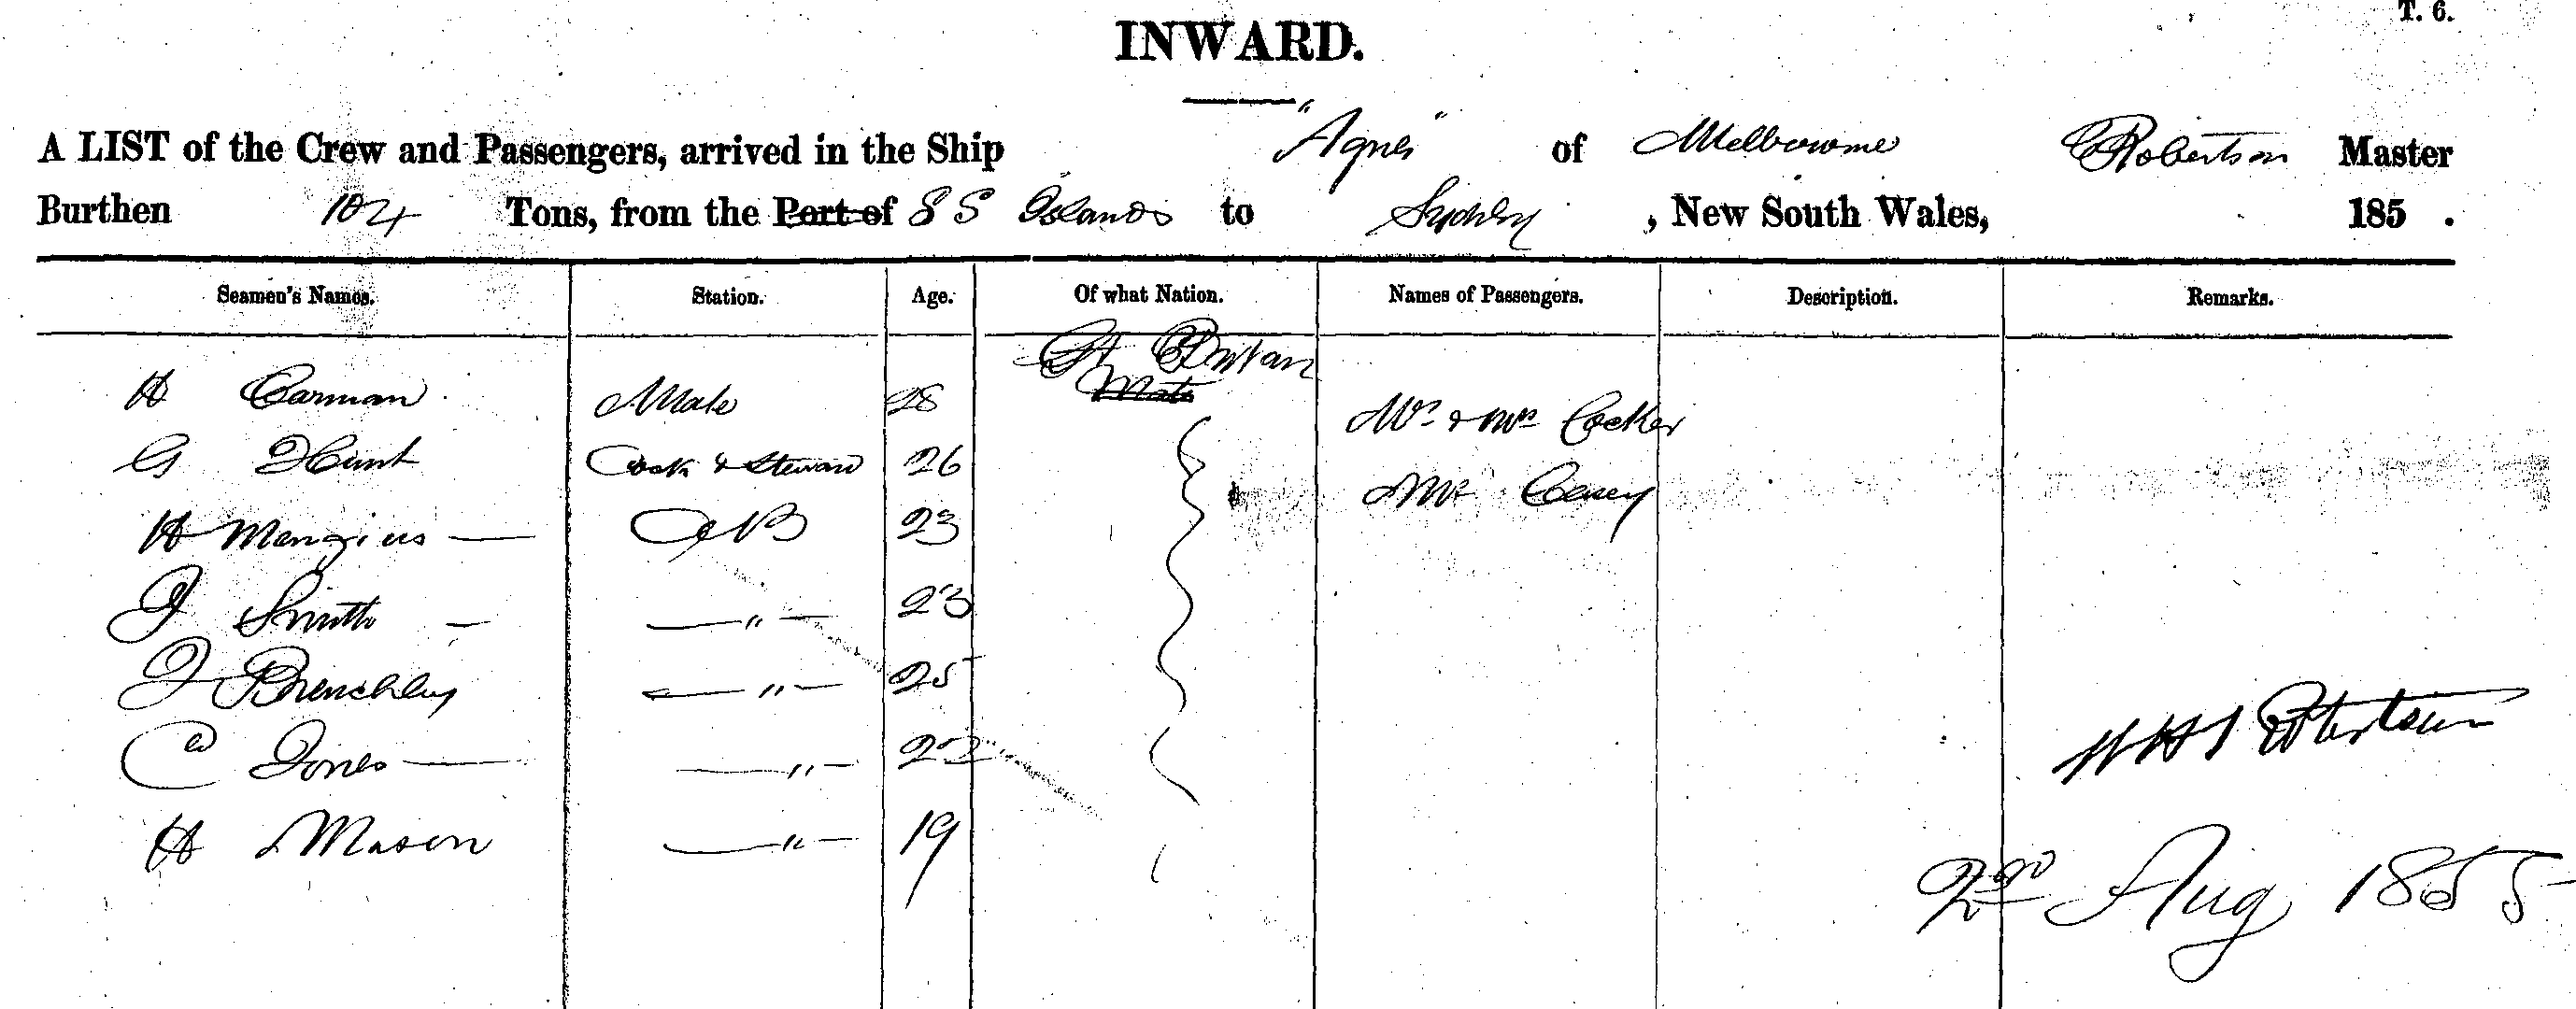 T. 6.
INWARD.
A LIST of the Crew and Passengers, arrived in the Ship "Agnes" of Melbourne C Robertson Master
Burthen 104 Tons, from the Port of S S Islands to Sydney, New South Wales, 185 .
Seamen's Names. Station. Age. Of what Nation. Names of Passengers. Description. Remarks.
Gt Britain
H Carman Mate 28 Mate Mr & Mrs Cocker
G Hunt Cook & Steward 26 Mr Casey
H Menzius — AB 23
J Smith — — " — 23
J Brenchley — " — 25
Ed Jones — — " — 22
Robertson
H Mason — " — 19
2nd Aug 1855